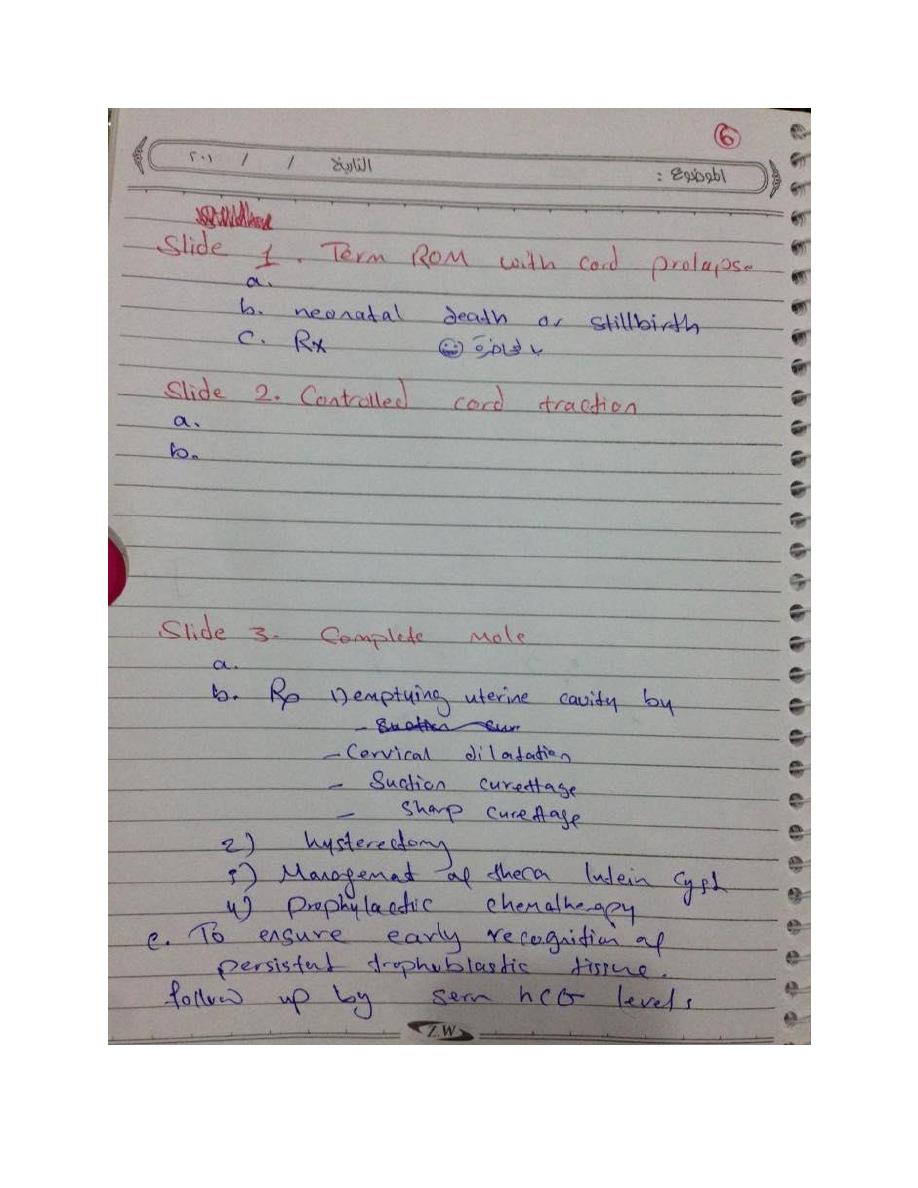 6
الموضوع :
التاريخ / / ٢٠١
Slide 1. Term ROM with cord prolapse
a.
b. neonatal death or stillbirth
c. Rx بالمحاضرة
Slide 2. Controlled cord traction
a.
b.
Slide 3. Complete Mole
a.
b. Rp 1) emptying uterine cavity by
- Suction cur
- Cervical diladation
- Suction curettage
- Sharp curettage
2) hysterectomy
3) Managemet of theca lutein cyst
4) prophylactic chemotherapy
c. To ensure early recognition of
persistent trophoblastic tissue.
follow up by serm hCG levels
Z.W